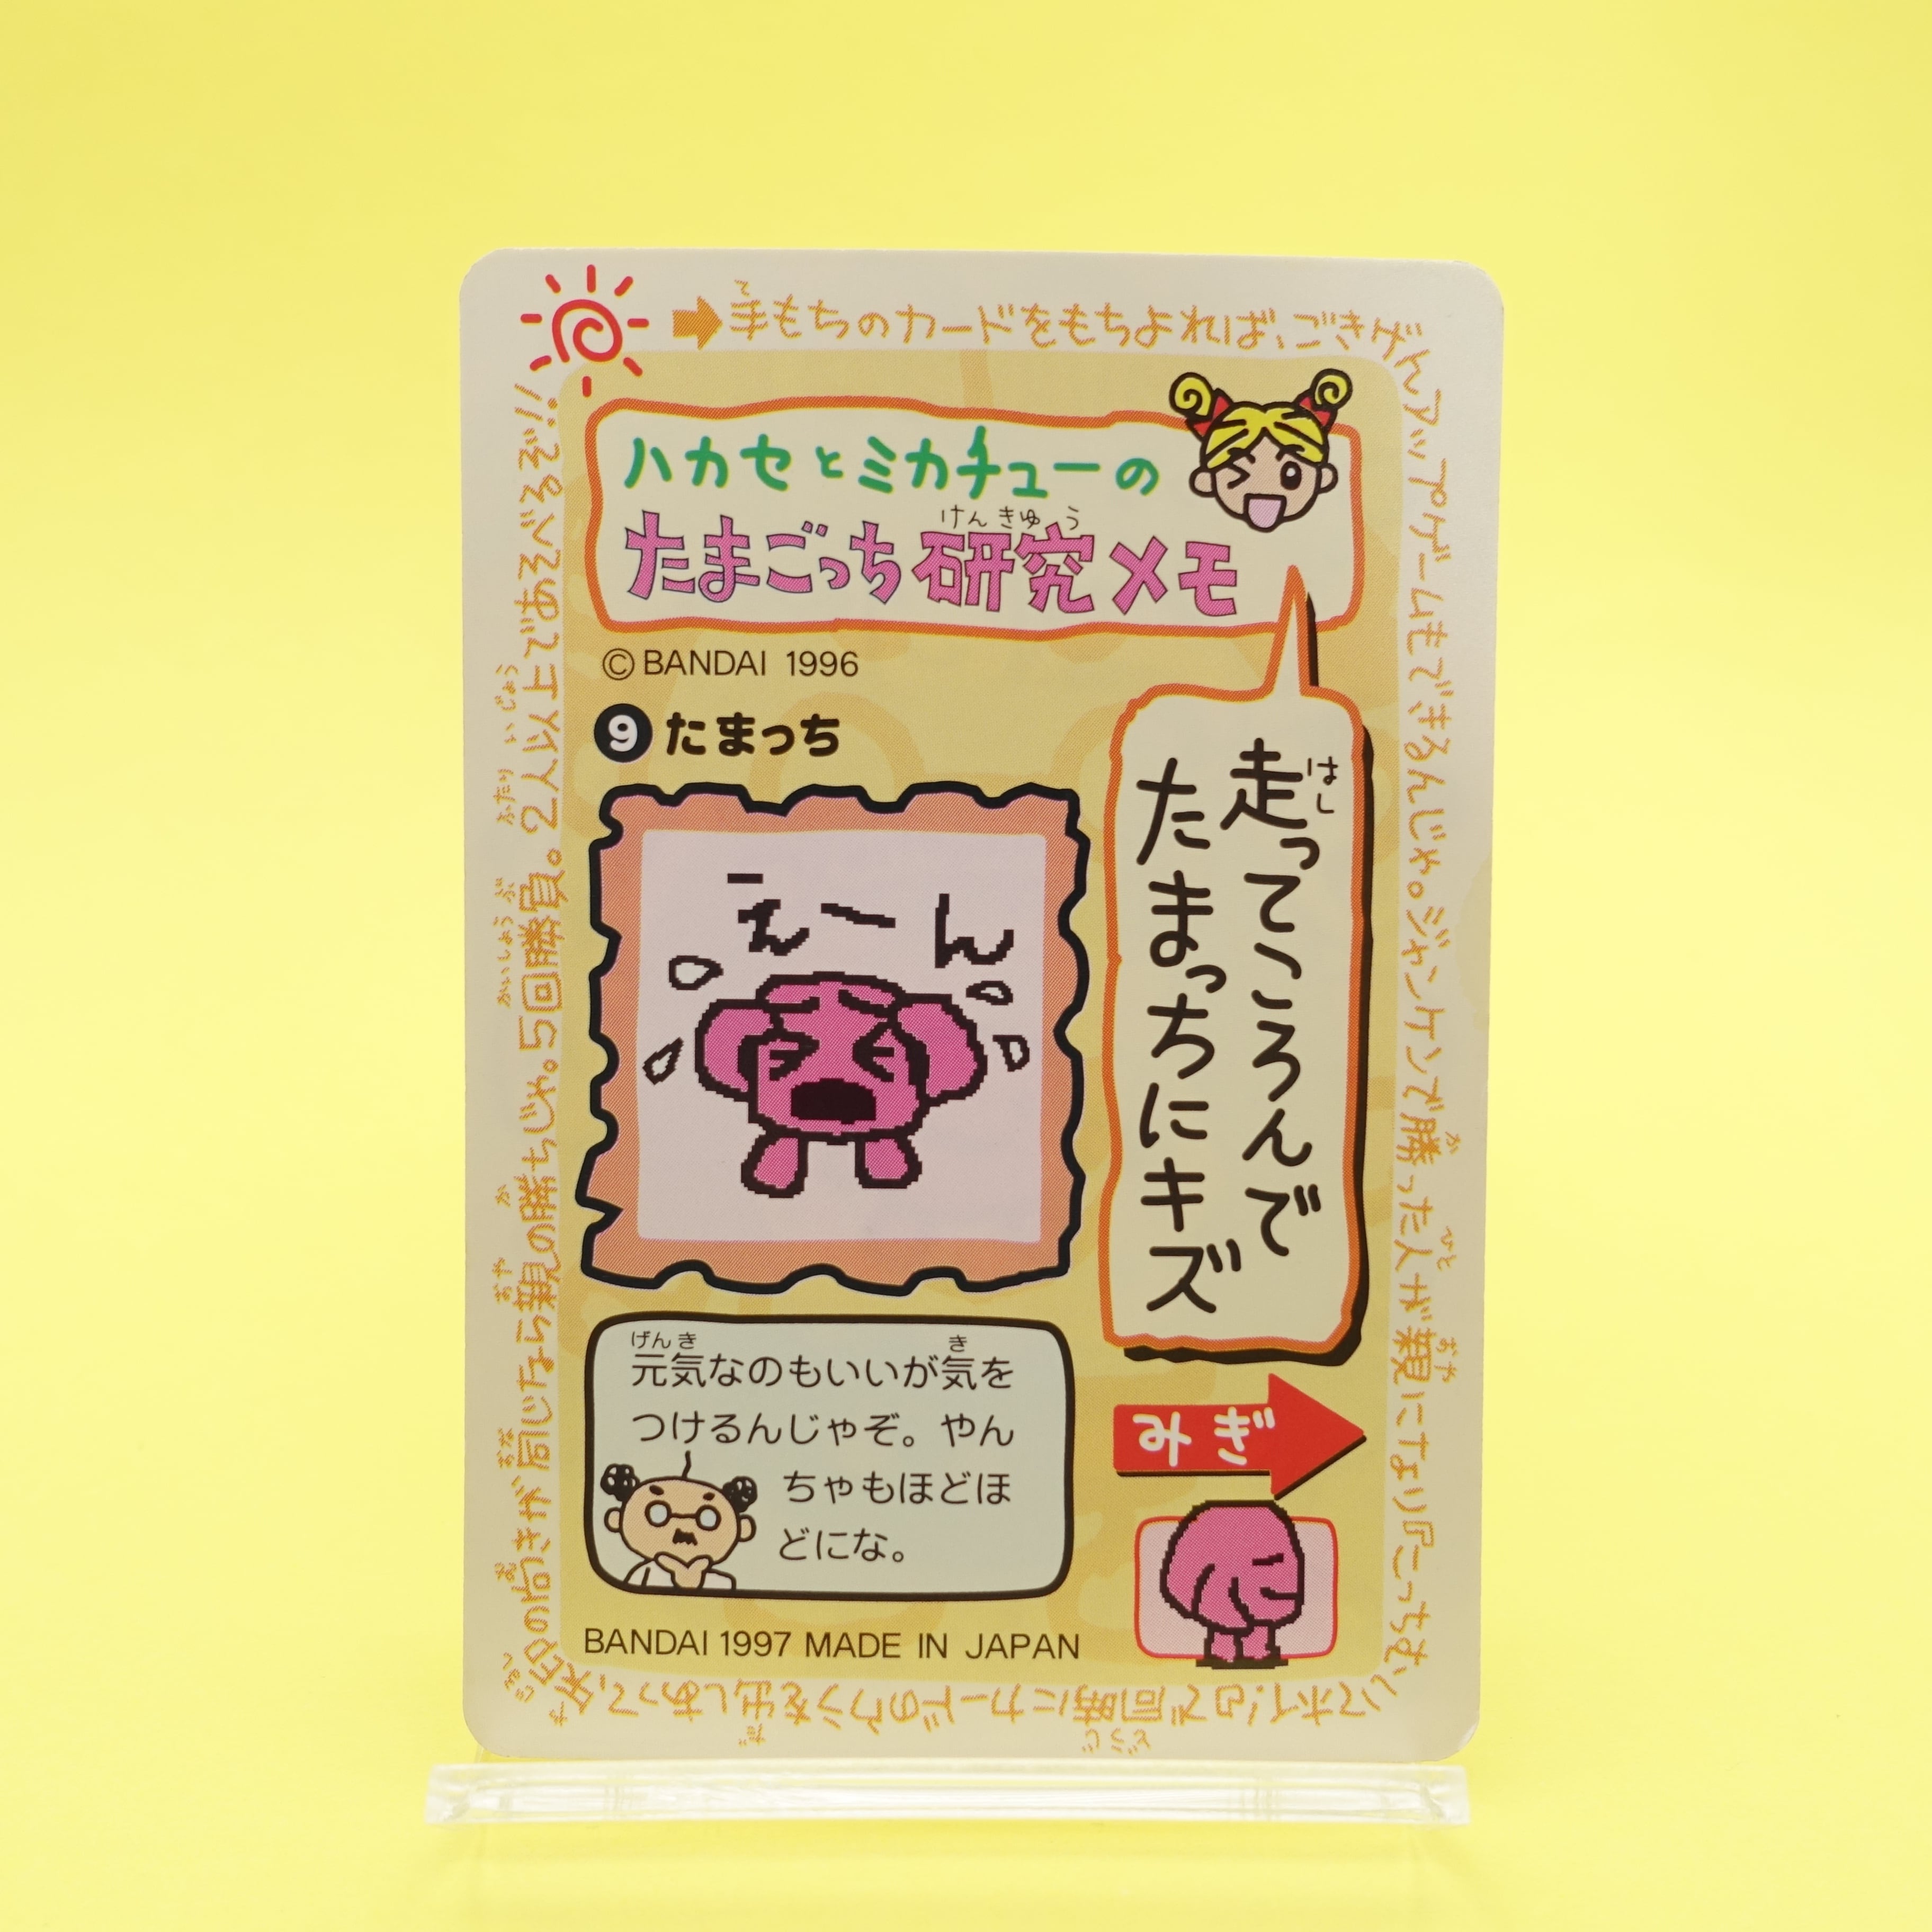 手もちのカードをもちよれば、ごきげんアップゲームもできるんじゃ。ジャンケンで勝った人が親になり『こっちむいてホイ!』で同時にカードのウラを出しあって、矢印の向きが同じなら親の勝ちじゃ。5回勝負。2人以上であそべるぞ!!
ハカセとミカチューの
けんきゅう
たまごっち研究メモ
©BANDAI 1996
9 たまっち
えーん
はし
走ってころんで
たまっちにキズ
げんき き
元気なのもいいが気を
つけるんじゃぞ。やん
ちゃもほどほ
どにな。
みぎ
BANDAI 1997 MADE IN JAPAN